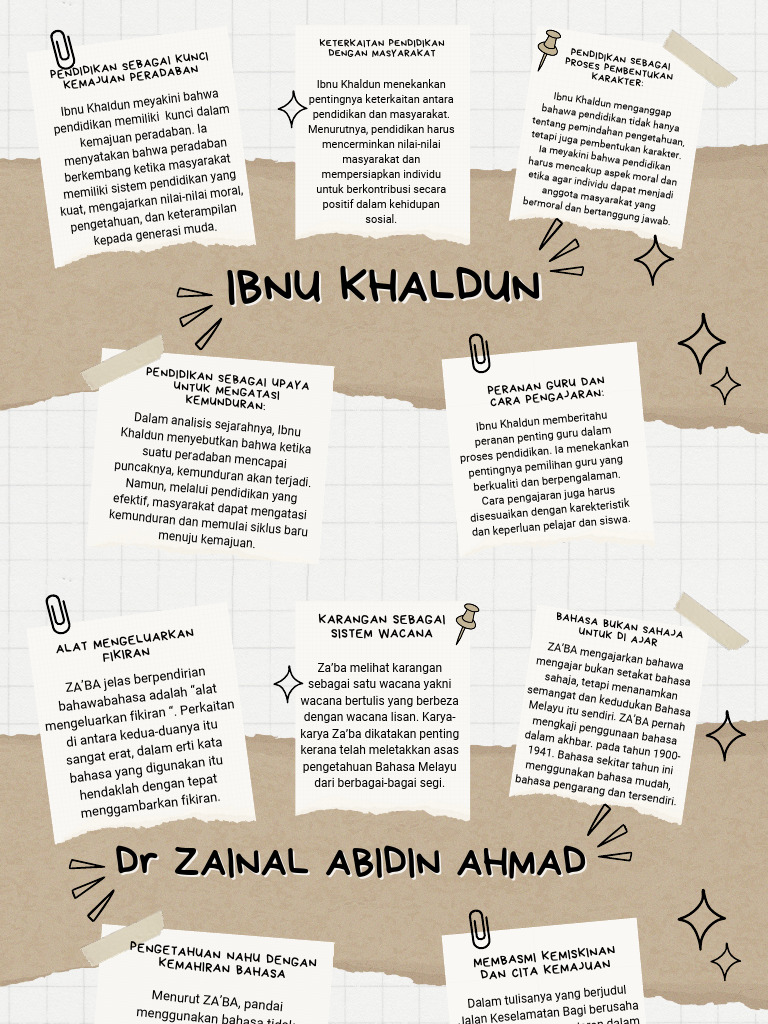 PENDIDIKAN SEBAGAI KUNCI
KEMAJUAN PERADABAN
Ibnu Khaldun meyakini bahwa
pendidikan memiliki kunci dalam
kemajuan peradaban. Ia
menyatakan bahwa peradaban
berkembang ketika masyarakat
memiliki sistem pendidikan yang
kuat, mengajarkan nilai-nilai moral,
pengetahuan, dan keterampilan
kepada generasi muda.
KETERKAITAN PENDIDIKAN
DENGAN MASYARAKAT
Ibnu Khaldun menekankan
pentingnya keterkaitan antara
pendidikan dan masyarakat.
Menurutnya, pendidikan harus
mencerminkan nilai-nilai
masyarakat dan
mempersiapkan individu
untuk berkontribusi secara
positif dalam kehidupan
sosial.
PENDIDIKAN SEBAGAI
PROSES PEMBENTUKAN
KARAKTER:
Ibnu Khaldun menganggap
bahawa pendidikan tidak hanya
tentang pemindahan pengetahuan,
tetapi juga pembentukan karakter.
Ia meyakini bahwa pendidikan
harus mencakup aspek moral dan
etika agar individu dapat menjadi
anggota masyarakat yang
bermoral dan bertanggung jawab.
IBNU KHALDUN
PENDIDIKAN SEBAGAI UPAYA
UNTUK MENGATASI
KEMUNDURAN:
Dalam analisis sejarahnya, Ibnu
Khaldun menyebutkan bahwa ketika
suatu peradaban mencapai
puncaknya, kemunduran akan terjadi.
Namun, melalui pendidikan yang
efektif, masyarakat dapat mengatasi
kemunduran dan memulai siklus baru
menuju kemajuan.
PERANAN GURU DAN
CARA PENGAJARAN:
Ibnu Khaldun memberitahu
peranan penting guru dalam
proses pendidikan. Ia menekankan
pentingnya pemilihan guru yang
berkualiti dan berpengalaman.
Cara pengajaran juga harus
disesuaikan dengan karekteristik
dan keperluan pelajar dan siswa.
ALAT MENGELUARKAN
FIKIRAN
ZA'BA jelas berpendirian
bahawabahasa adalah "alat
mengeluarkan fikiran ". Perkaitan
di antara kedua-duanya itu
sangat erat, dalam erti kata
bahasa yang digunakan itu
hendaklah dengan tepat
menggambarkan fikiran.
KARANGAN SEBAGAI
SISTEM WACANA
Za'ba melihat karangan
sebagai satu wacana yakni
wacana bertulis yang berbeza
dengan wacana lisan. Karya-
karya Za'ba dikatakan penting
kerana telah meletakkan asas
pengetahuan Bahasa Melayu
dari berbagai-bagai segi.
BAHASA BUKAN SAHAJA
UNTUK DI AJAR
ZA'BA mengajarkan bahawa
mengajar bukan setakat bahasa
sahaja, tetapi menanamkan
semangat dan kedudukan Bahasa
Melayu itu sendiri. ZA'BA pernah
mengkaji penggunaan bahasa
dalam akhbar. pada tahun 1900-
1941. Bahasa sekitar tahun ini
menggunakan bahasa mudah,
bahasa pengarang dan tersendiri.
Dr ZAINAL ABIDIN AHMAD
PENGETAHUAN NAHU DENGAN
KEMAHIRAN BAHASA
Menurut ZA'BA, pandai
menggunakan bahasa tidak
MEMBASMI KEMISKINAN
DAN CITA KEMAJUAN
Dalam tulisanya yang berjudul
Jalan Keselamatan Bagi berusaha